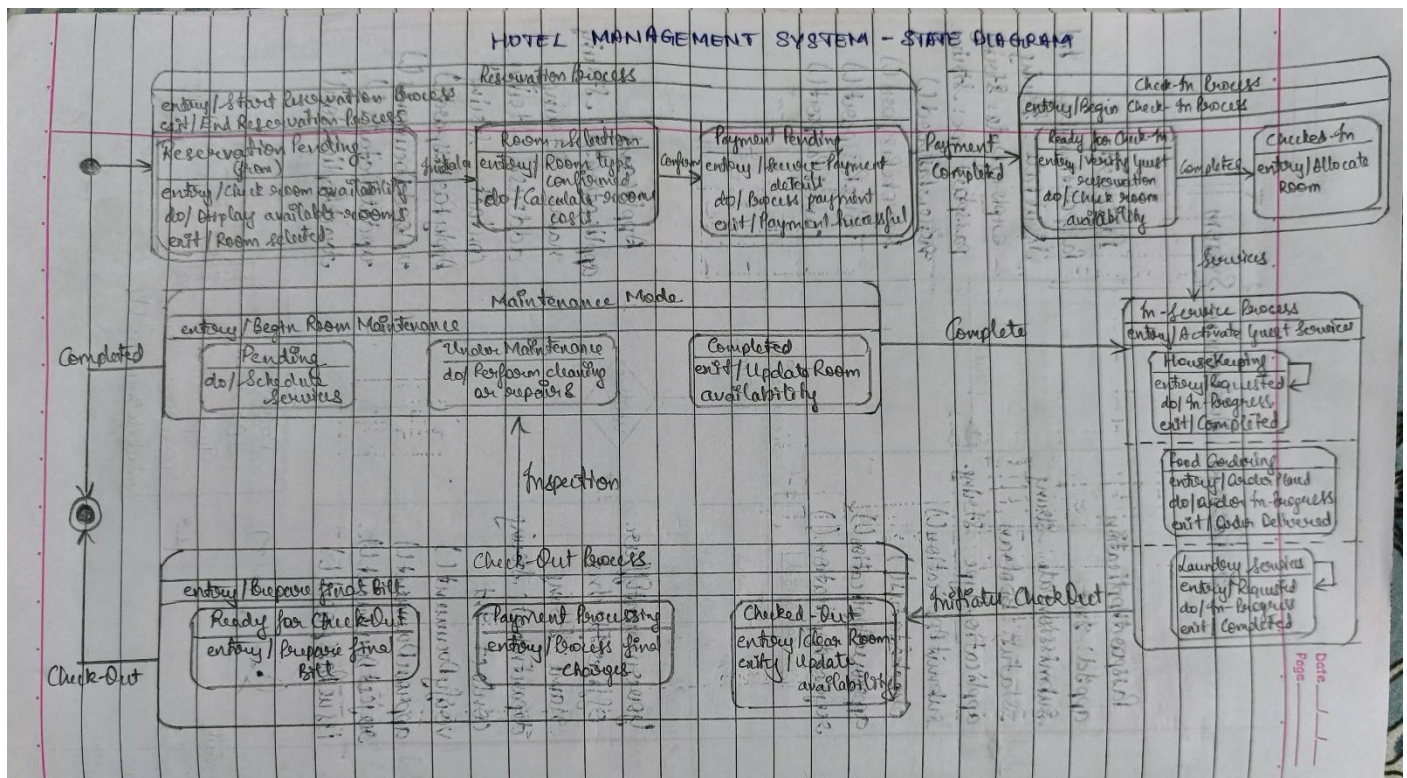 HOTEL MANAGEMENT SYSTEM - STATE DIAGRAM
Reservation Process
entry/Start Reservation Process
exit/End Reservation Process
Reservation Pending
entry/Check room availability
do/Display available rooms
exit/Room selected
Room Selection
entry/Room type
confirmed
do/Calculate room
costs
Confirm
Payment Pending
entry/Receive Payment
details
do/Process payment
exit/Payment Successful
Payment
Completed
Check-In Process
entry/Begin Check-In Process
Ready for Check-In
entry/Verify guest
reservation
do/Check room
availability
Completed
Checked-In
entry/Allocate
Room
Services
Maintenance Mode
entry/Begin Room Maintenance
Pending
do/Schedule
Services
Under Maintenance
do/Perform cleaning
or repairs
Completed
exit/Update Room
availability
Complete
Completed
In-Service Process
entry/Activate Guest Services
HouseKeeping
entry/Requested
do/In-Progress
exit/Completed
Food Ordering
entry/Order Placed
do/Order In-Progress
exit/Order Delivered
Laundry Services
entry/Requested
do/In-Progress
exit/Completed
Inspection
Initiate CheckOut
Check-Out Process
entry/Prepare final Bill
Ready for Check-Out
entry/Prepare final
Bill
Payment Processing
entry/Process final
Charges
Checked-Out
entry/Clear Room
exit/Update
availability
Check-Out
Date
Page